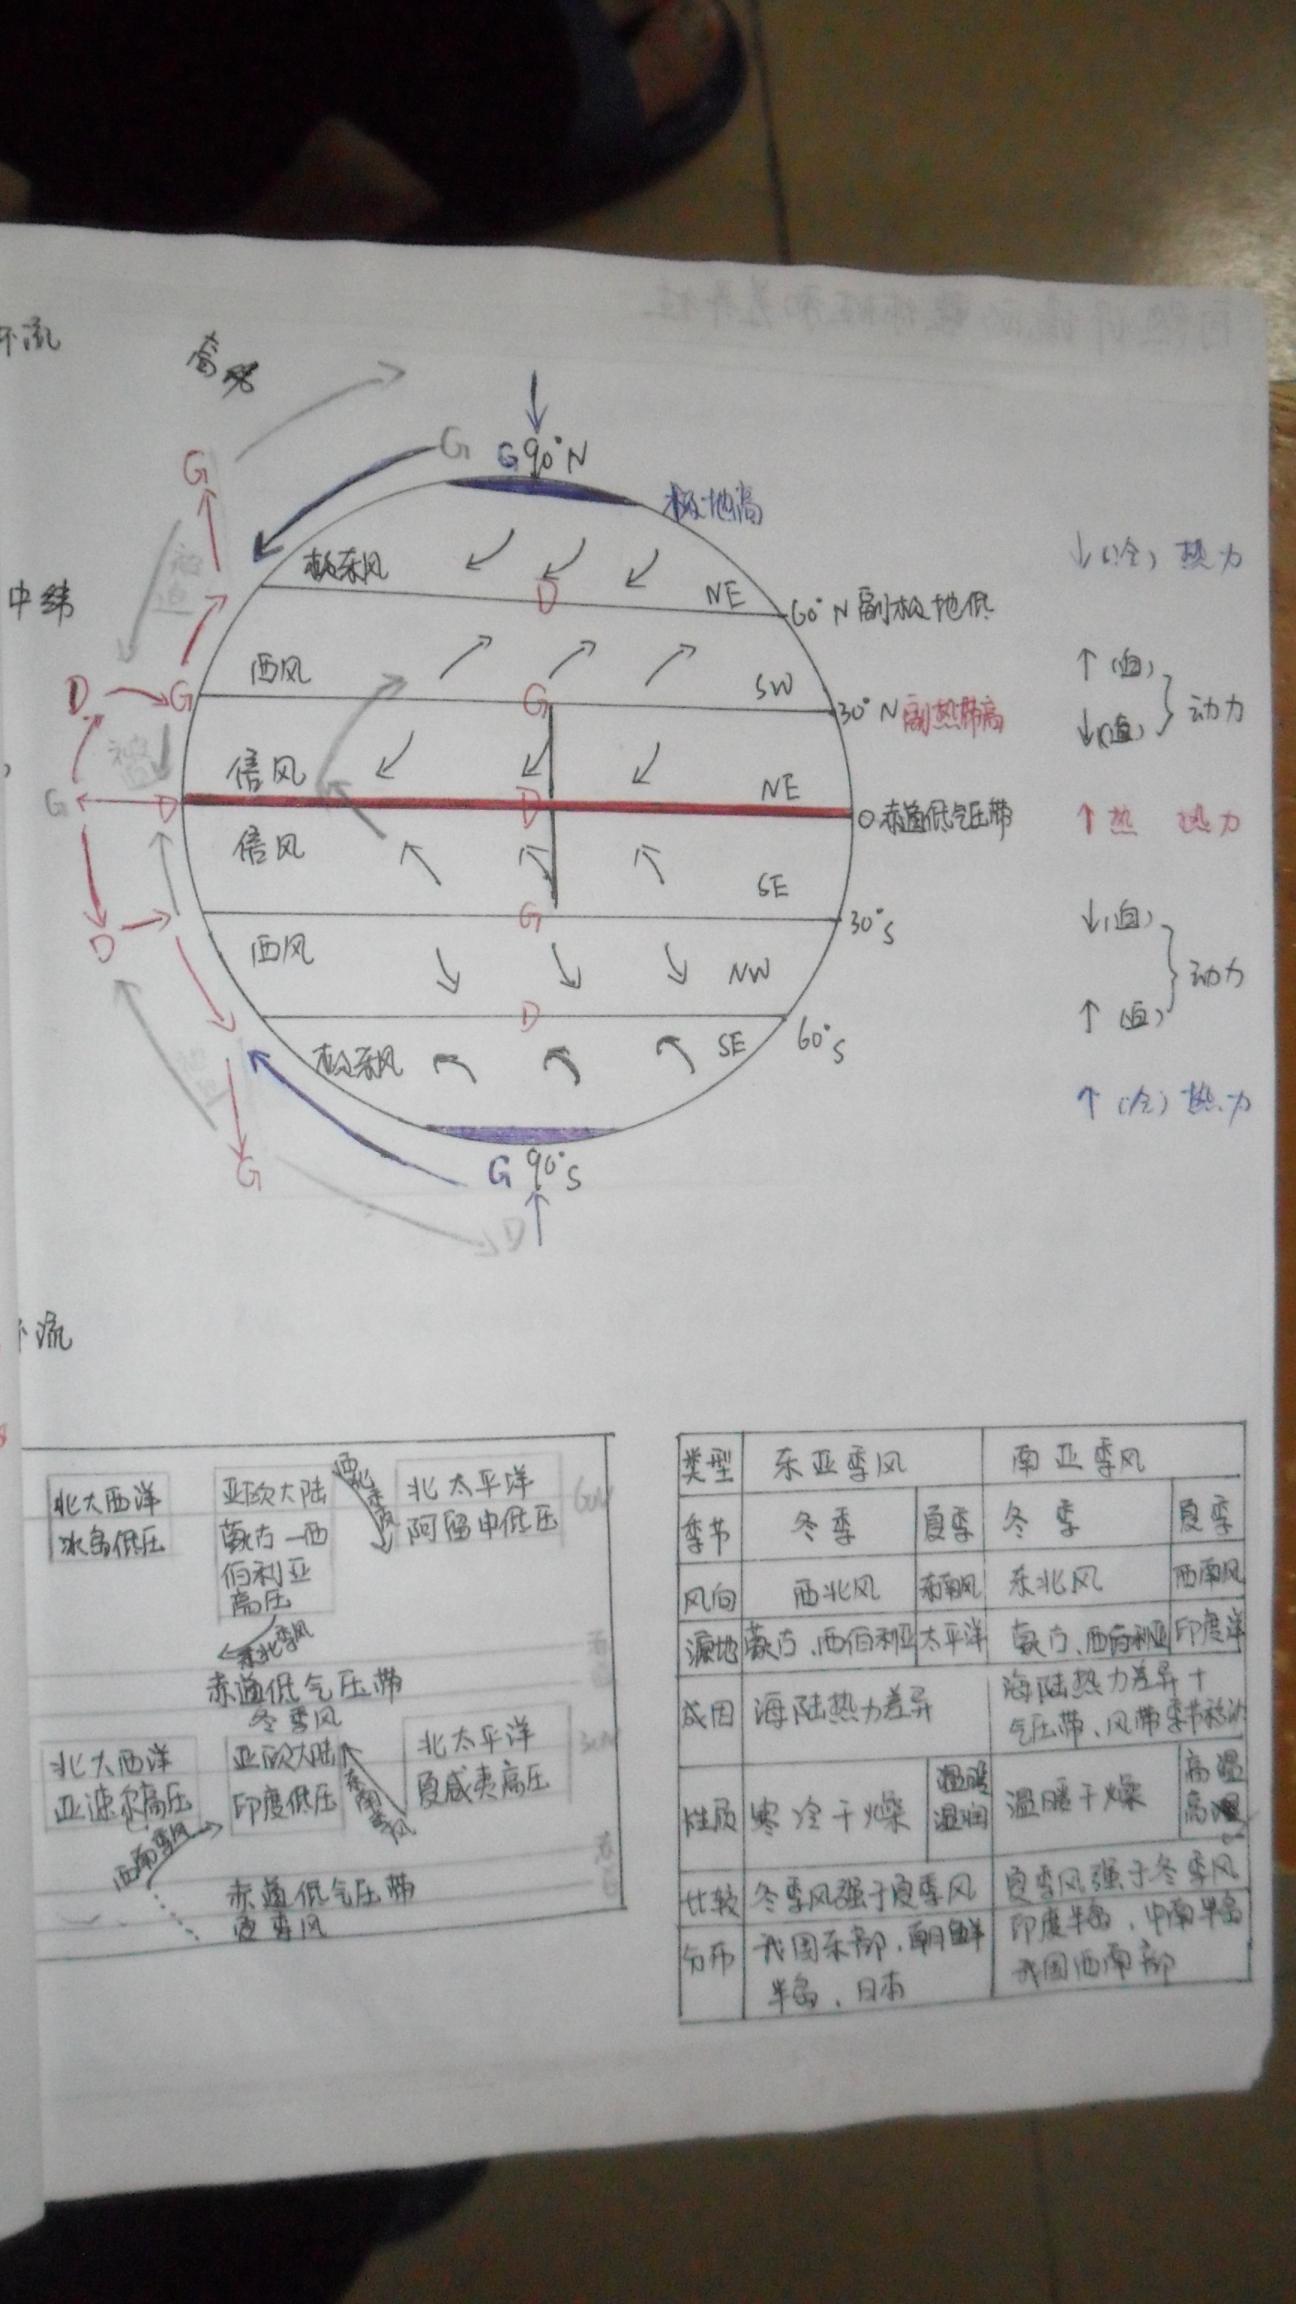 环流
高纬
G
G
G 90°N
极地高
↓(冷) 热力
极东风
D
NE
60°N 副极地低
中纬
被迫
↑(迫)
西风
SW
D
G
G
30°N 副热带高
↓(迫)
动力
信风
被迫
NE
G
D
D
0 赤道低气压带
↑热 热力
信风
SE
G
30°S
↓(迫)
D
西风
NW
动力
D
60°S
↑(迫)
极东风
SE
↑(冷) 热力
G
G 90°S
D
环流
北大西洋
冰岛低压
亚欧大陆
蒙古—西
伯利亚
高压
西北季风
北太平洋
阿留申低压
东北季风
赤道低气压带
冬季风
北大西洋
亚速尔高压
亚欧大陆
印度低压
东南季风
北太平洋
夏威夷高压
西南季风
赤道低气压带
夏季风
类型 东亚季风 南亚季风
季节 冬季 夏季 冬季 夏季
风向 西北风 东南风 东北风 西南风
源地 蒙古、西伯利亚 太平洋 蒙古、西伯利亚 印度洋
成因 海陆热力差异 海陆热力差异+
气压带、风带季节移动
性质 寒冷干燥 温暖湿润 温暖干燥 高温高湿
比较 冬季风强于夏季风 夏季风强于冬季风
分布 我国东部、朝鲜半岛、日本 印度半岛、中南半岛
我国西南部